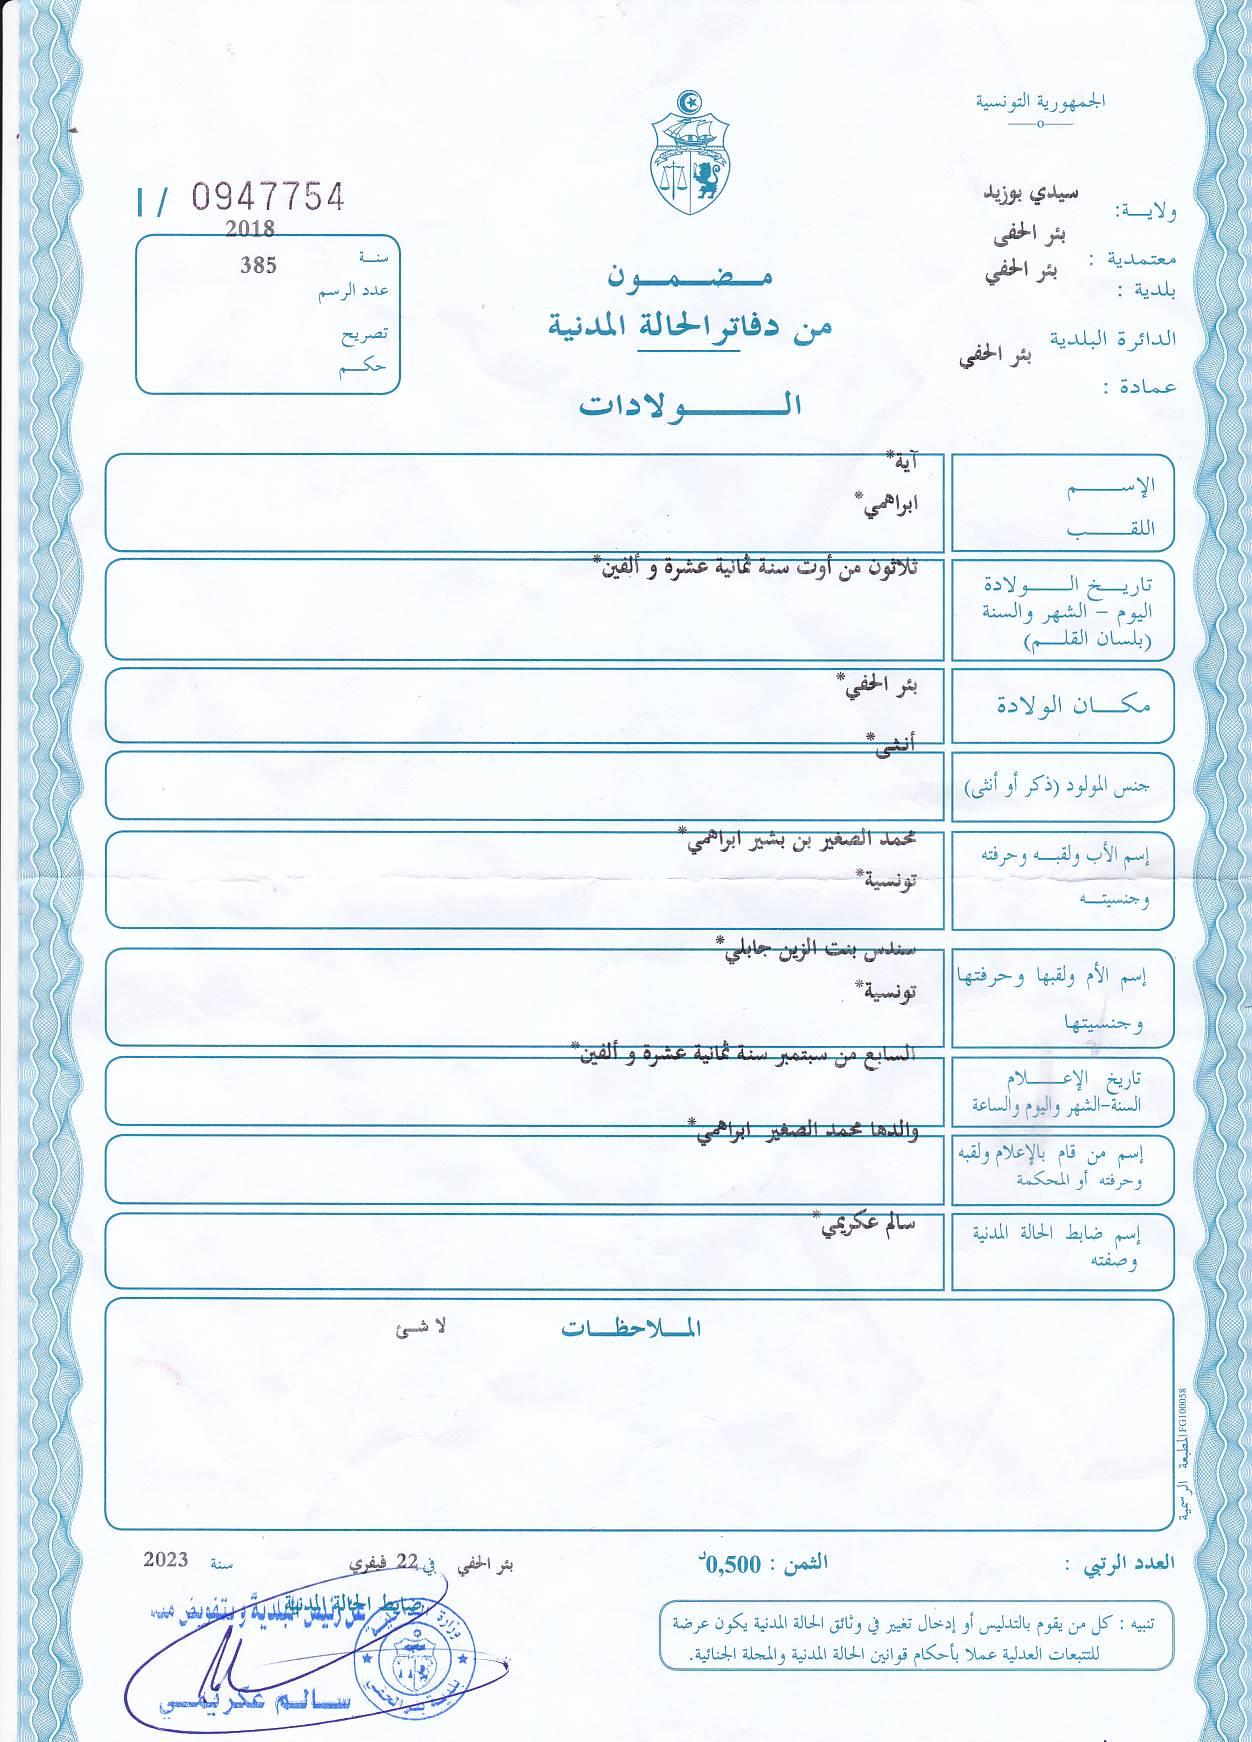 الجمهورية التونسية
ولايـــة: سيدي بوزيد
معتمدية : بئر الحفى
بلدية : بئر الحفي
الدائرة البلدية
بئر الحفي
عمادة :
I / 0947754
2018
سنـة
385
عدد الرسم
تصريح
حكــم
مـضـمـون
من دفاتر الحالة المدنية
الـــولادات
الإســـم
آية*
اللقـــب
ابراهمي*
تاريـــخ الـــولادة
اليوم – الشهر والسنة
(بلسان القلــم)
ثلاثون من أوت سنة ثمانية عشرة و ألفين*
مكـــان الولادة
بئر الحفي*
جنس المولود (ذكر أو أنثى)
أنثى*
إسم الأب ولقبـــه وحرفته
محمد الصغير بن بشير ابراهمي*
وجنسيتـــه
تونسية*
إسم الأم ولقبها وحرفتها
سندس بنت الزين جابلي*
وجنسيتها
تونسية*
تاريخ الإعـــلام
السنة-الشهر واليوم والساعة
السابع من سبتمبر سنة ثمانية عشرة و ألفين*
إسم من قام بالإعلام ولقبه
وحرفته أو المحكمة
والدها محمد الصغير ابراهمي*
إسم ضابط الحالة المدنية
وصفته
سالم عكريمي*
المــلاحظــات
لا شئ
المطبعة الرسمية FG100058
العدد الرتبي :
الثمن : 0,500د
بئر الحفي في 22 فيفري سنة 2023
ضابط الحالة المدنية
تنبيه : كل من يقوم بالتدليس أو إدخال تغيير في وثائق الحالة المدنية يكون عرضة
للتتبعات العدلية عملا بأحكام قوانين الحالة المدنية والمجلة الجنائية.
عن رئيس البلدية وبتفويض منه
سـالـم عكريمـي
بلدية بئر الحفي